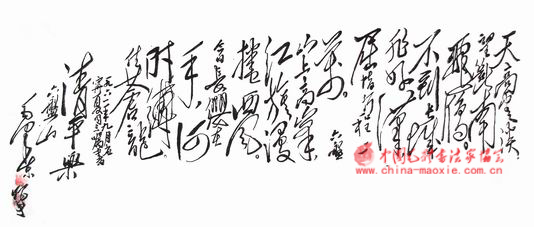 天高云淡
望断南
飞雁
不到长城
非好汉
屈指行程
二万
六盘
山上高峰
红旗漫
卷西风
今日长缨在
手何
时缚
住苍龙
清平乐
六盘山
毛泽东
www.china-maoxie.com